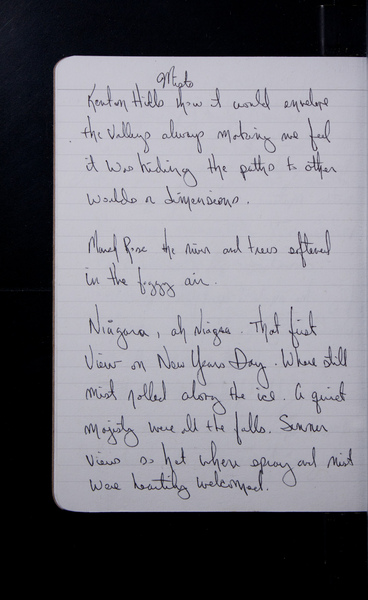 Mists
Kenton Hills how it would envelope
the valleys always making me feel
it was hiding the paths to other
worlds or dimensions.
Rose the river and trees softened
in the foggy air.
Niagara, ah Niagra. That first
view on New Years Day. Where still
mist rolled along the ice. A quiet
majisty were all the falls. Summer
views so hot where spray and mist
were heartily welcomed.